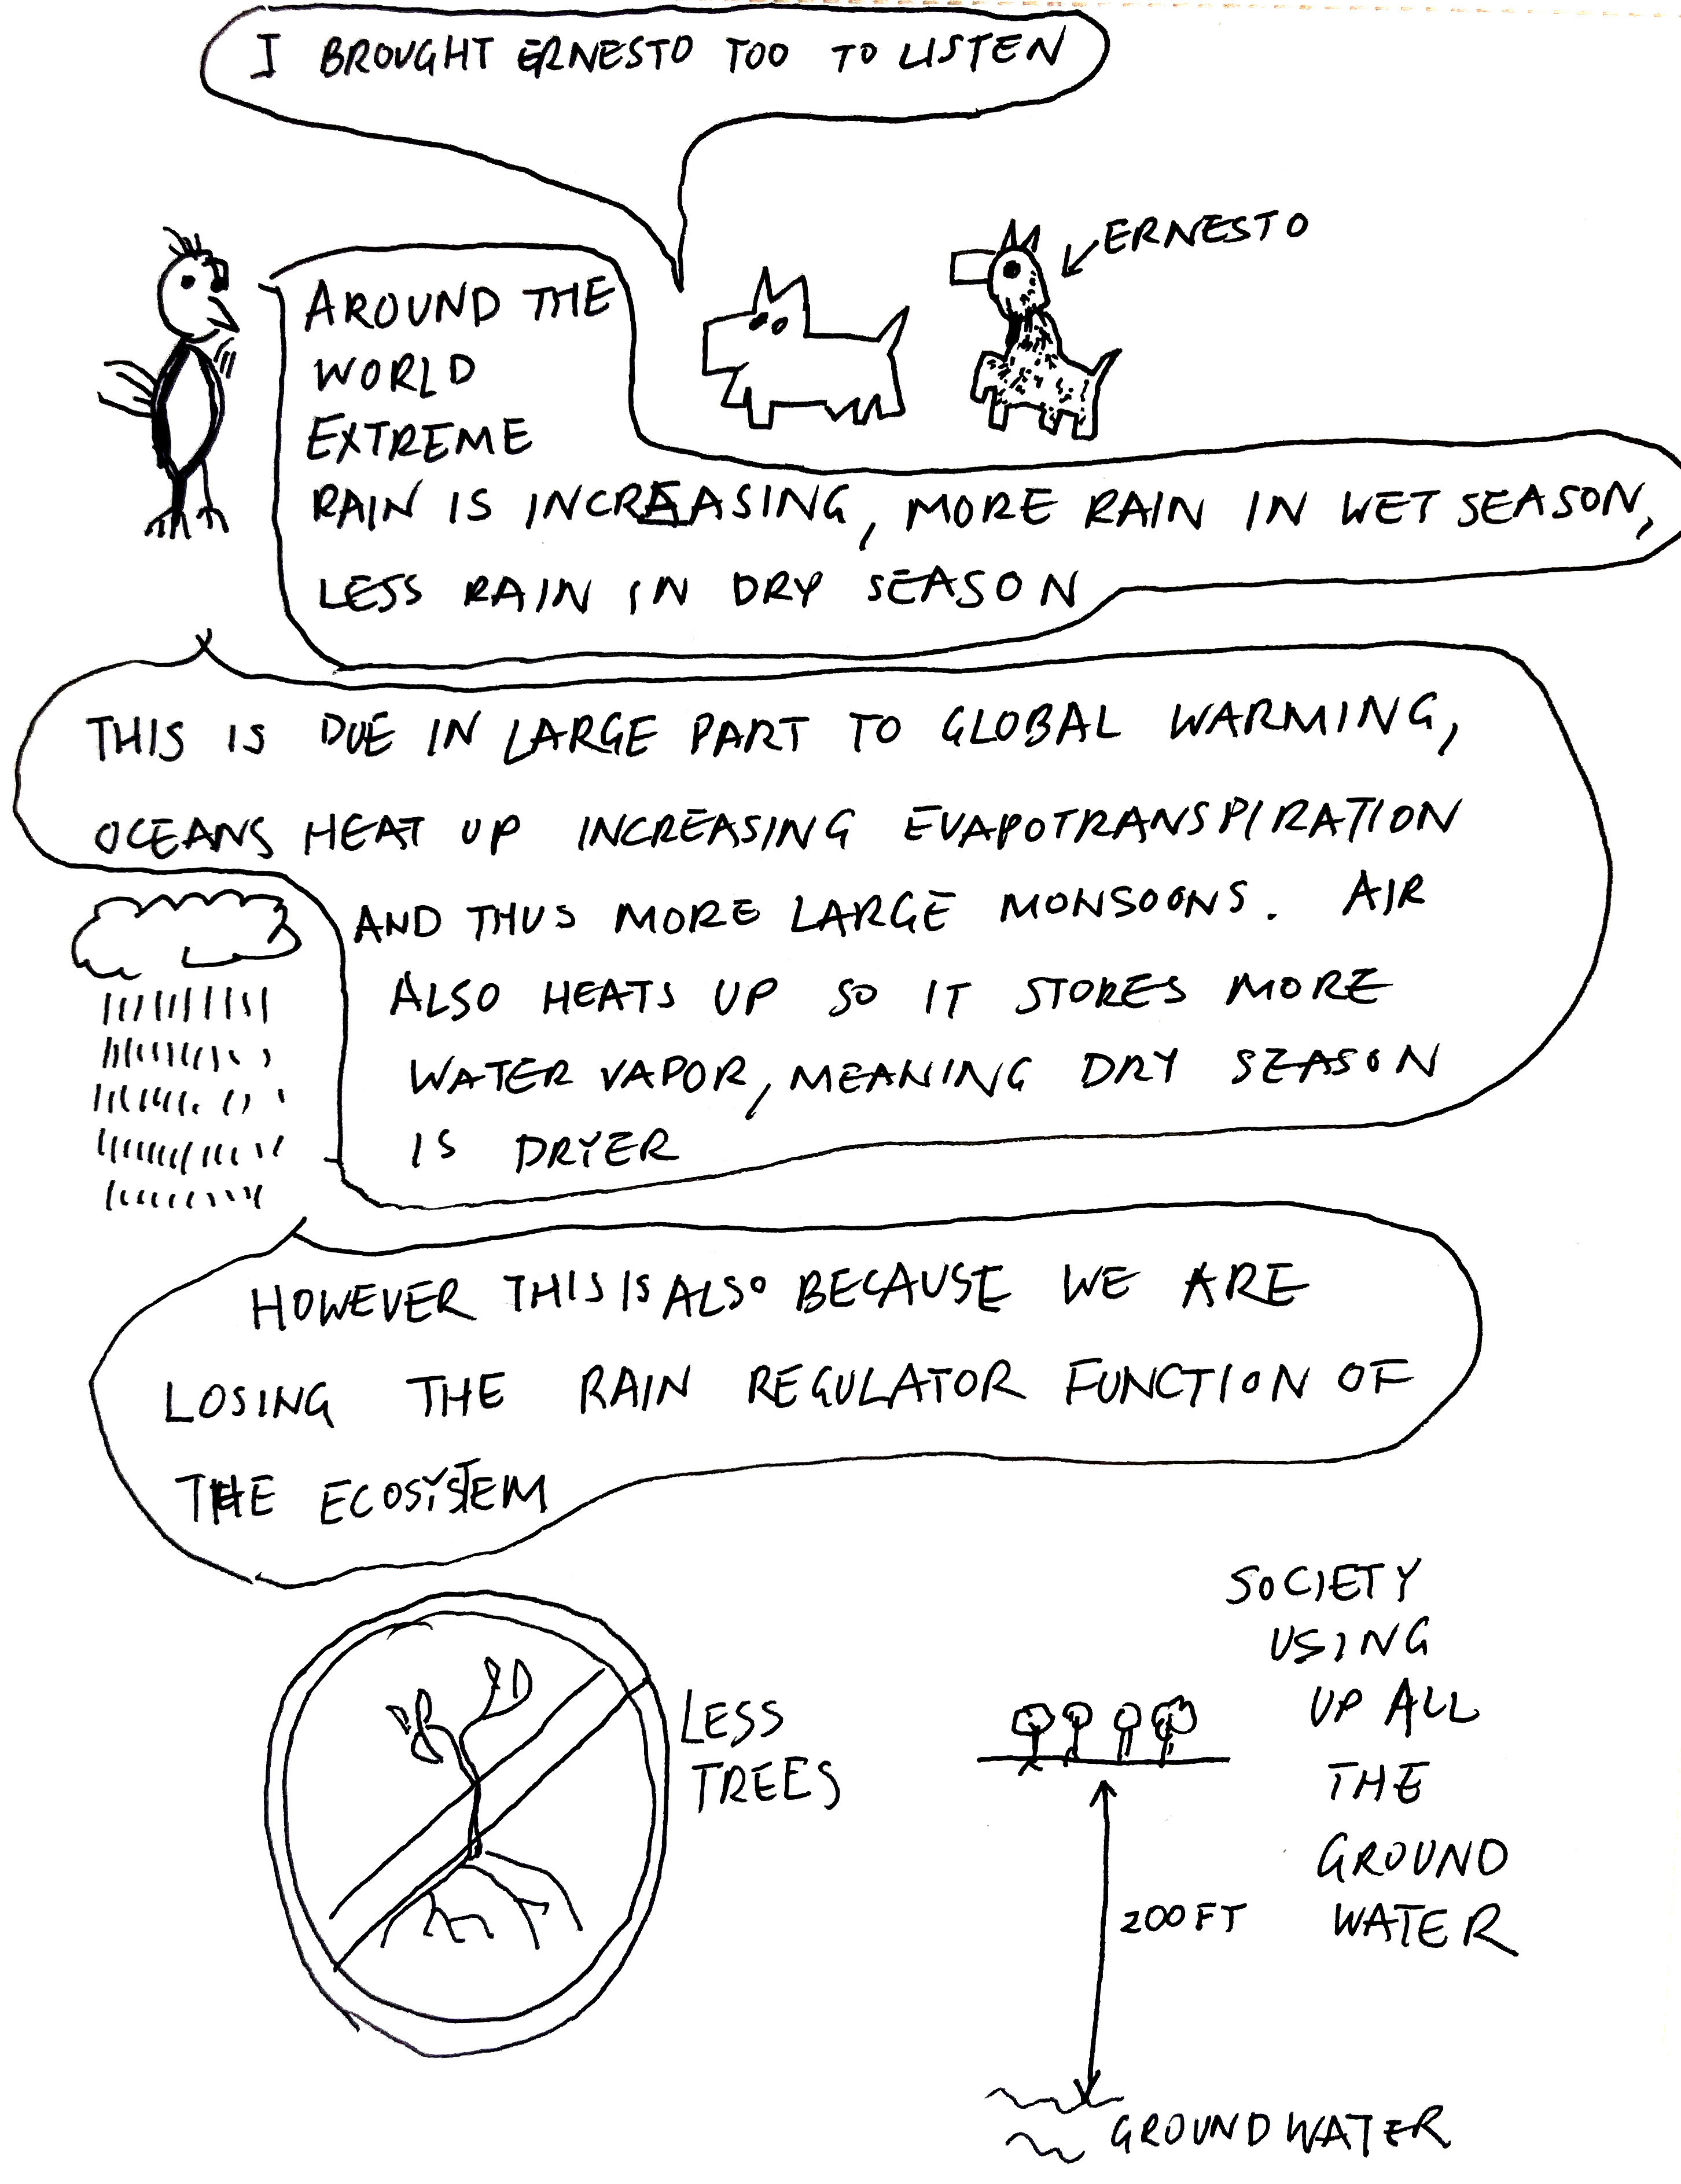 I BROUGHT ERNESTO TOO TO LISTEN
ERNESTO
AROUND THE
WORLD
EXTREME
RAIN IS INCREASING, MORE RAIN IN WET SEASON,
LESS RAIN IN DRY SEASON
THIS IS DUE IN LARGE PART TO GLOBAL WARMING,
OCEANS HEAT UP INCREASING EVAPOTRANSPIRATION
AND THUS MORE LARGE MONSOONS. AIR
ALSO HEATS UP SO IT STORES MORE
WATER VAPOR, MEANING DRY SEASON
IS DRYER
HOWEVER THIS IS ALSO BECAUSE WE ARE
LOSING THE RAIN REGULATOR FUNCTION OF
THE ECOSYSTEM
LESS
TREES
SOCIETY
USING
UP ALL
THE
GROUND
WATER
200FT
GROUNDWATER